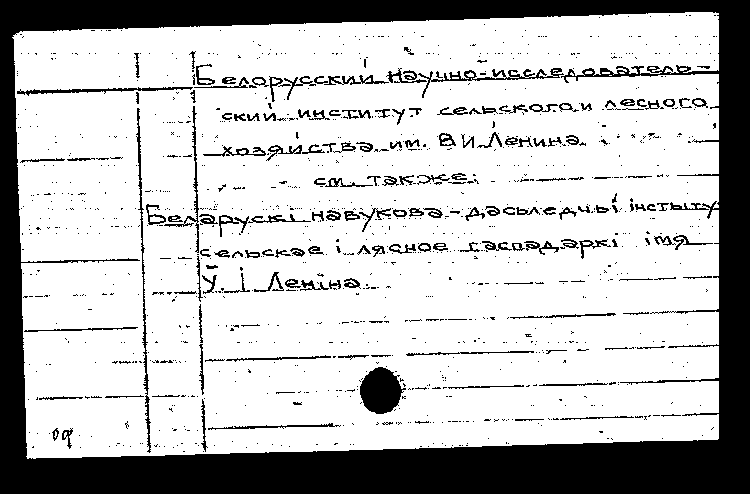 Белорусский научно-исследователь-
ский институт сельского и лесного
хозяйства им. В.И. Ленина.
см. также:
Беларускі навукова-дасьледчы інстыту
сельскае і лясное гаспадаркі імя
Ў. І Леніна.